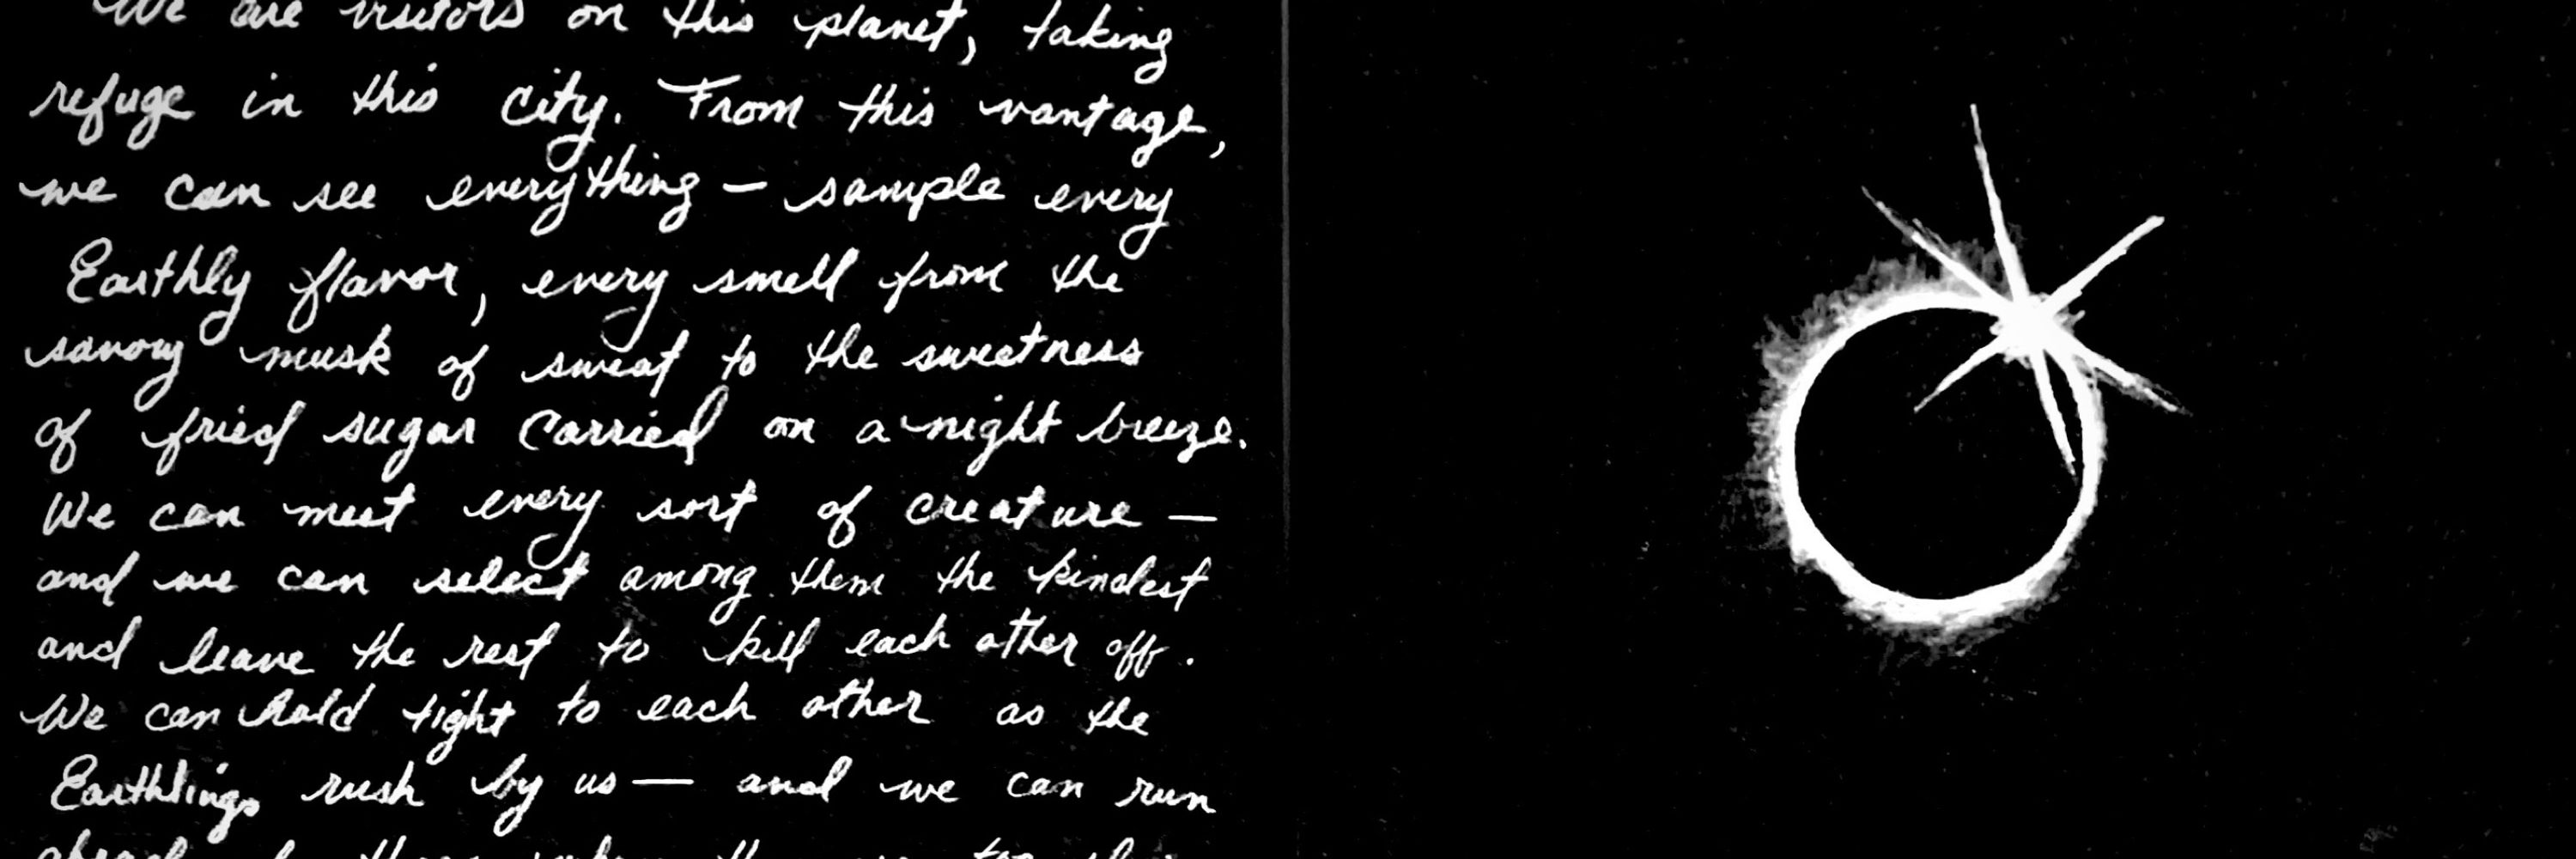 We are visitors on this planet, taking
refuge in this city. From this vantage,
we can see everything — sample every
Earthly flavor, every smell from the
savory musk of sweat to the sweetness
of fried sugar carried on a night breeze.
We can meet every sort of creature —
and we can select among them the kindest
and leave the rest to kill each other off.
We can hold tight to each other as the
Earthlings rush by us — and we can run